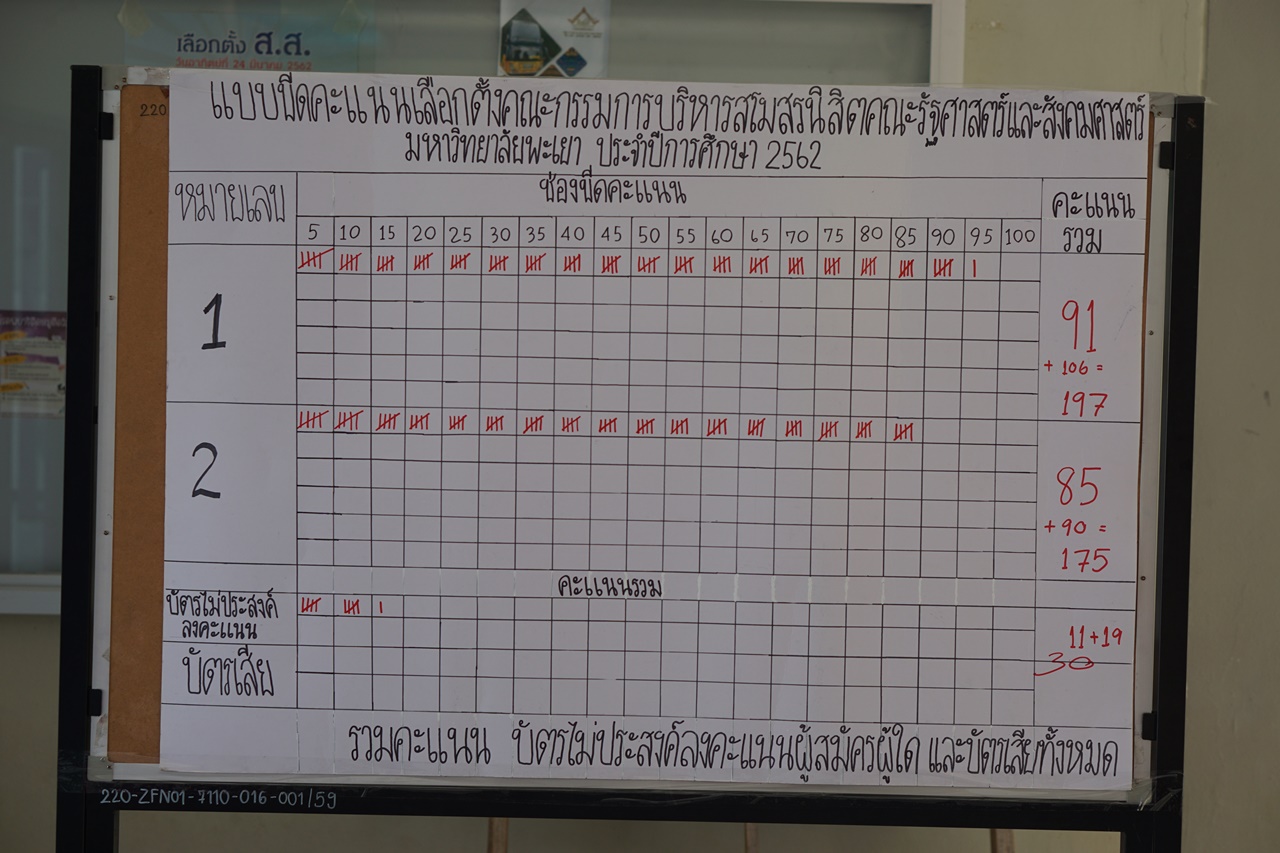 เลือกตั้ง ส.ส.
วันอาทิตย์ที่ 24 มีนาคม 2562
220
แบบขีดคะแนนเลือกตั้งคณะกรรมการบริหารสโมสรนิสิตคณะรัฐศาสตร์และสังคมศาสตร์
มหาวิทยาลัยพะเยา ประจำปีการศึกษา 2562
หมายเลข
ช่องขีดคะแนน
คะแนน
รวม
5 10 15 20 25 30 35 40 45 50 55 60 65 70 75 80 85 90 95 100
1
91
+ 106 =
197
2
85
+ 90 =
175
คะแนนรวม
บัตรไม่ประสงค์
ลงคะแนน
11+19
30
บัตรเสีย
รวมคะแนน บัตรไม่ประสงค์ลงคะแนนผู้สมัครผู้ใด และบัตรเสียทั้งหมด
220-ZFN01-7110-016-001/59